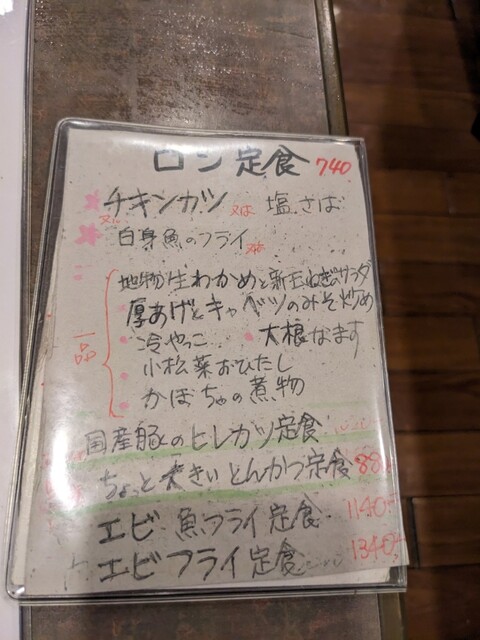 ロン定食 740
チキンカツ 又は 塩さば
又は
白身魚のフライ 又は
一品
地物生わかめと新玉ねぎのサラダ
厚あげとキャベツのみそ炒め
冷やっこ 大根なます
小松菜おひたし
かぼちゃの煮物
国産豚のヒレカツ定食
ちょっと大きいとんかつ定食
エビ・魚フライ定食 1140
エビフライ定食 1340